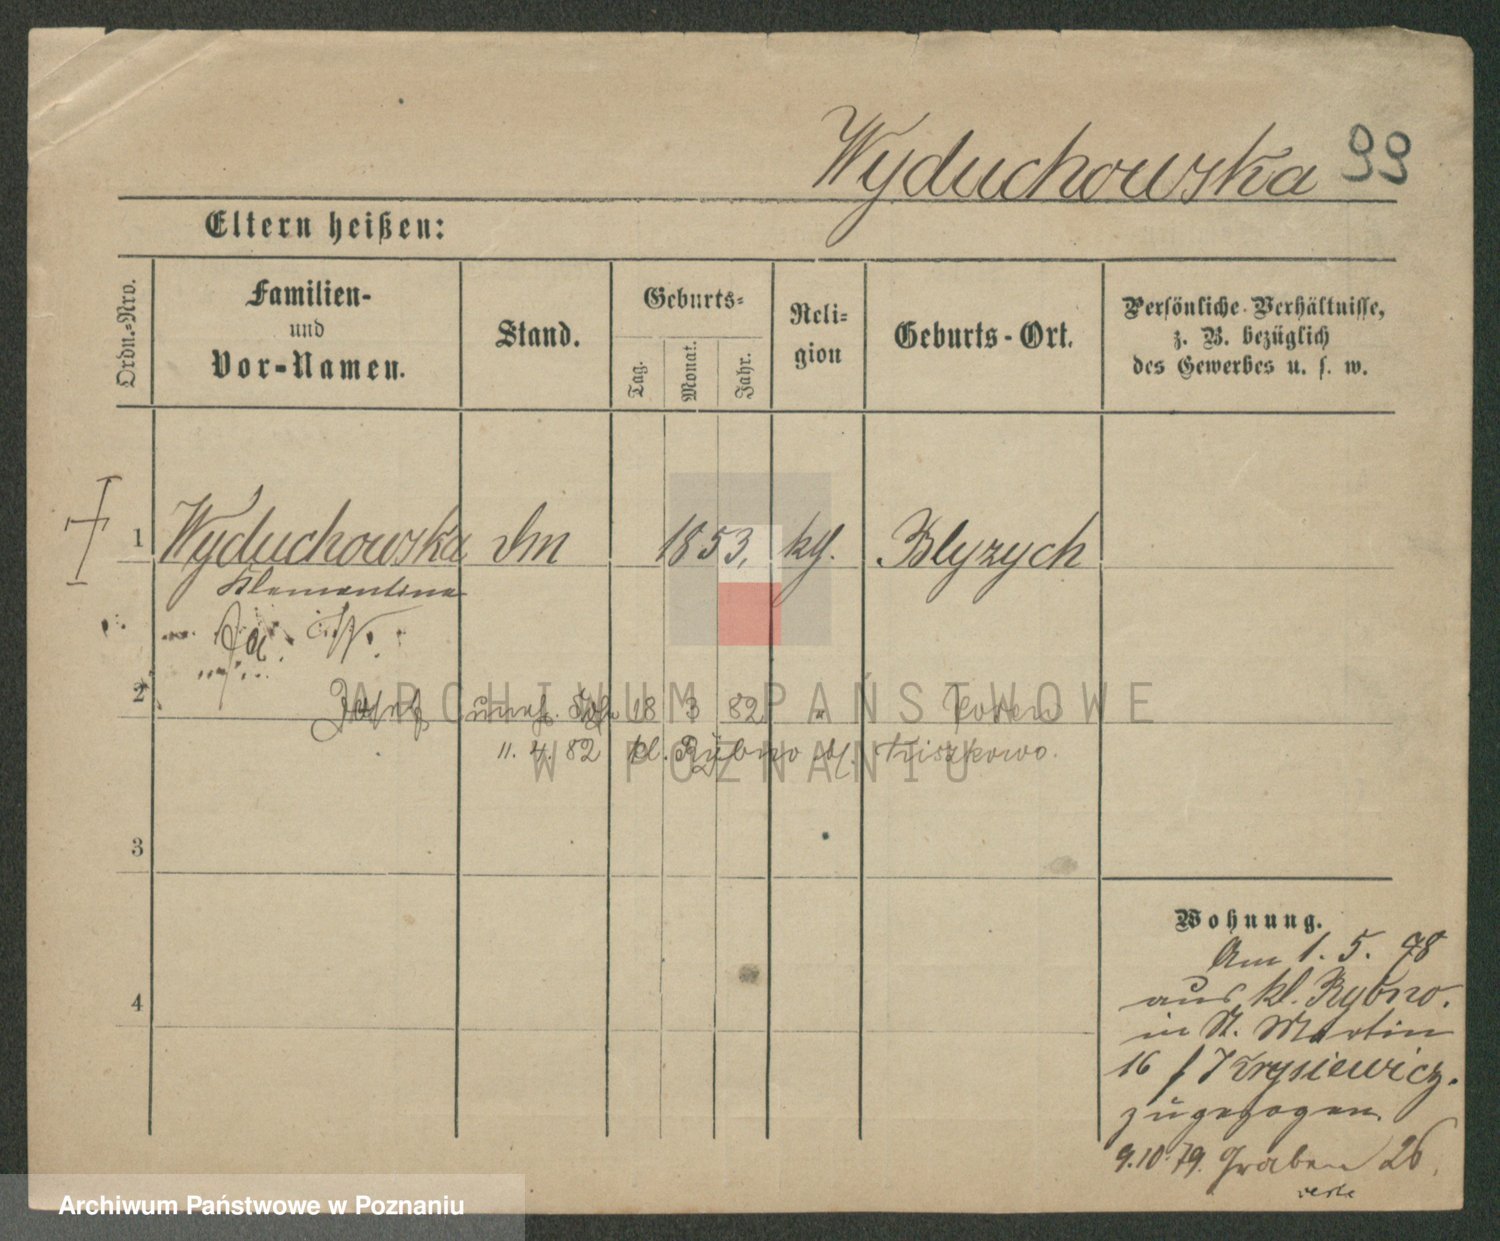 Wyduchowska 99
Eltern heißen:
Ordn.-Nro.
Familien-
und
Vor-Namen.
Stand.
Geburts-
Tag.
Monat.
Jahr.
Reli-
gion
Geburts-Ort.
Persönliche Verhältnisse,
z. B. bezüglich
des Gewerbes u. s. w.
1 Wyduchowska 1853, kth. Blyzych
Klementina
2 Josef uneh. 18 3 82 " Posen
11. 4. 82 kl. Rybno bl. Kiszkowo.
3
4
Wohnung.
Am 1. 5. 78
aus kl. Rybno.
in St. Martin
16 f Krysiewicz.
zugezogen
9.10.79. Graben 26
ARCHIWUM PAŃSTWOWE
W POZNANIU
Archiwum Państwowe w Poznaniu